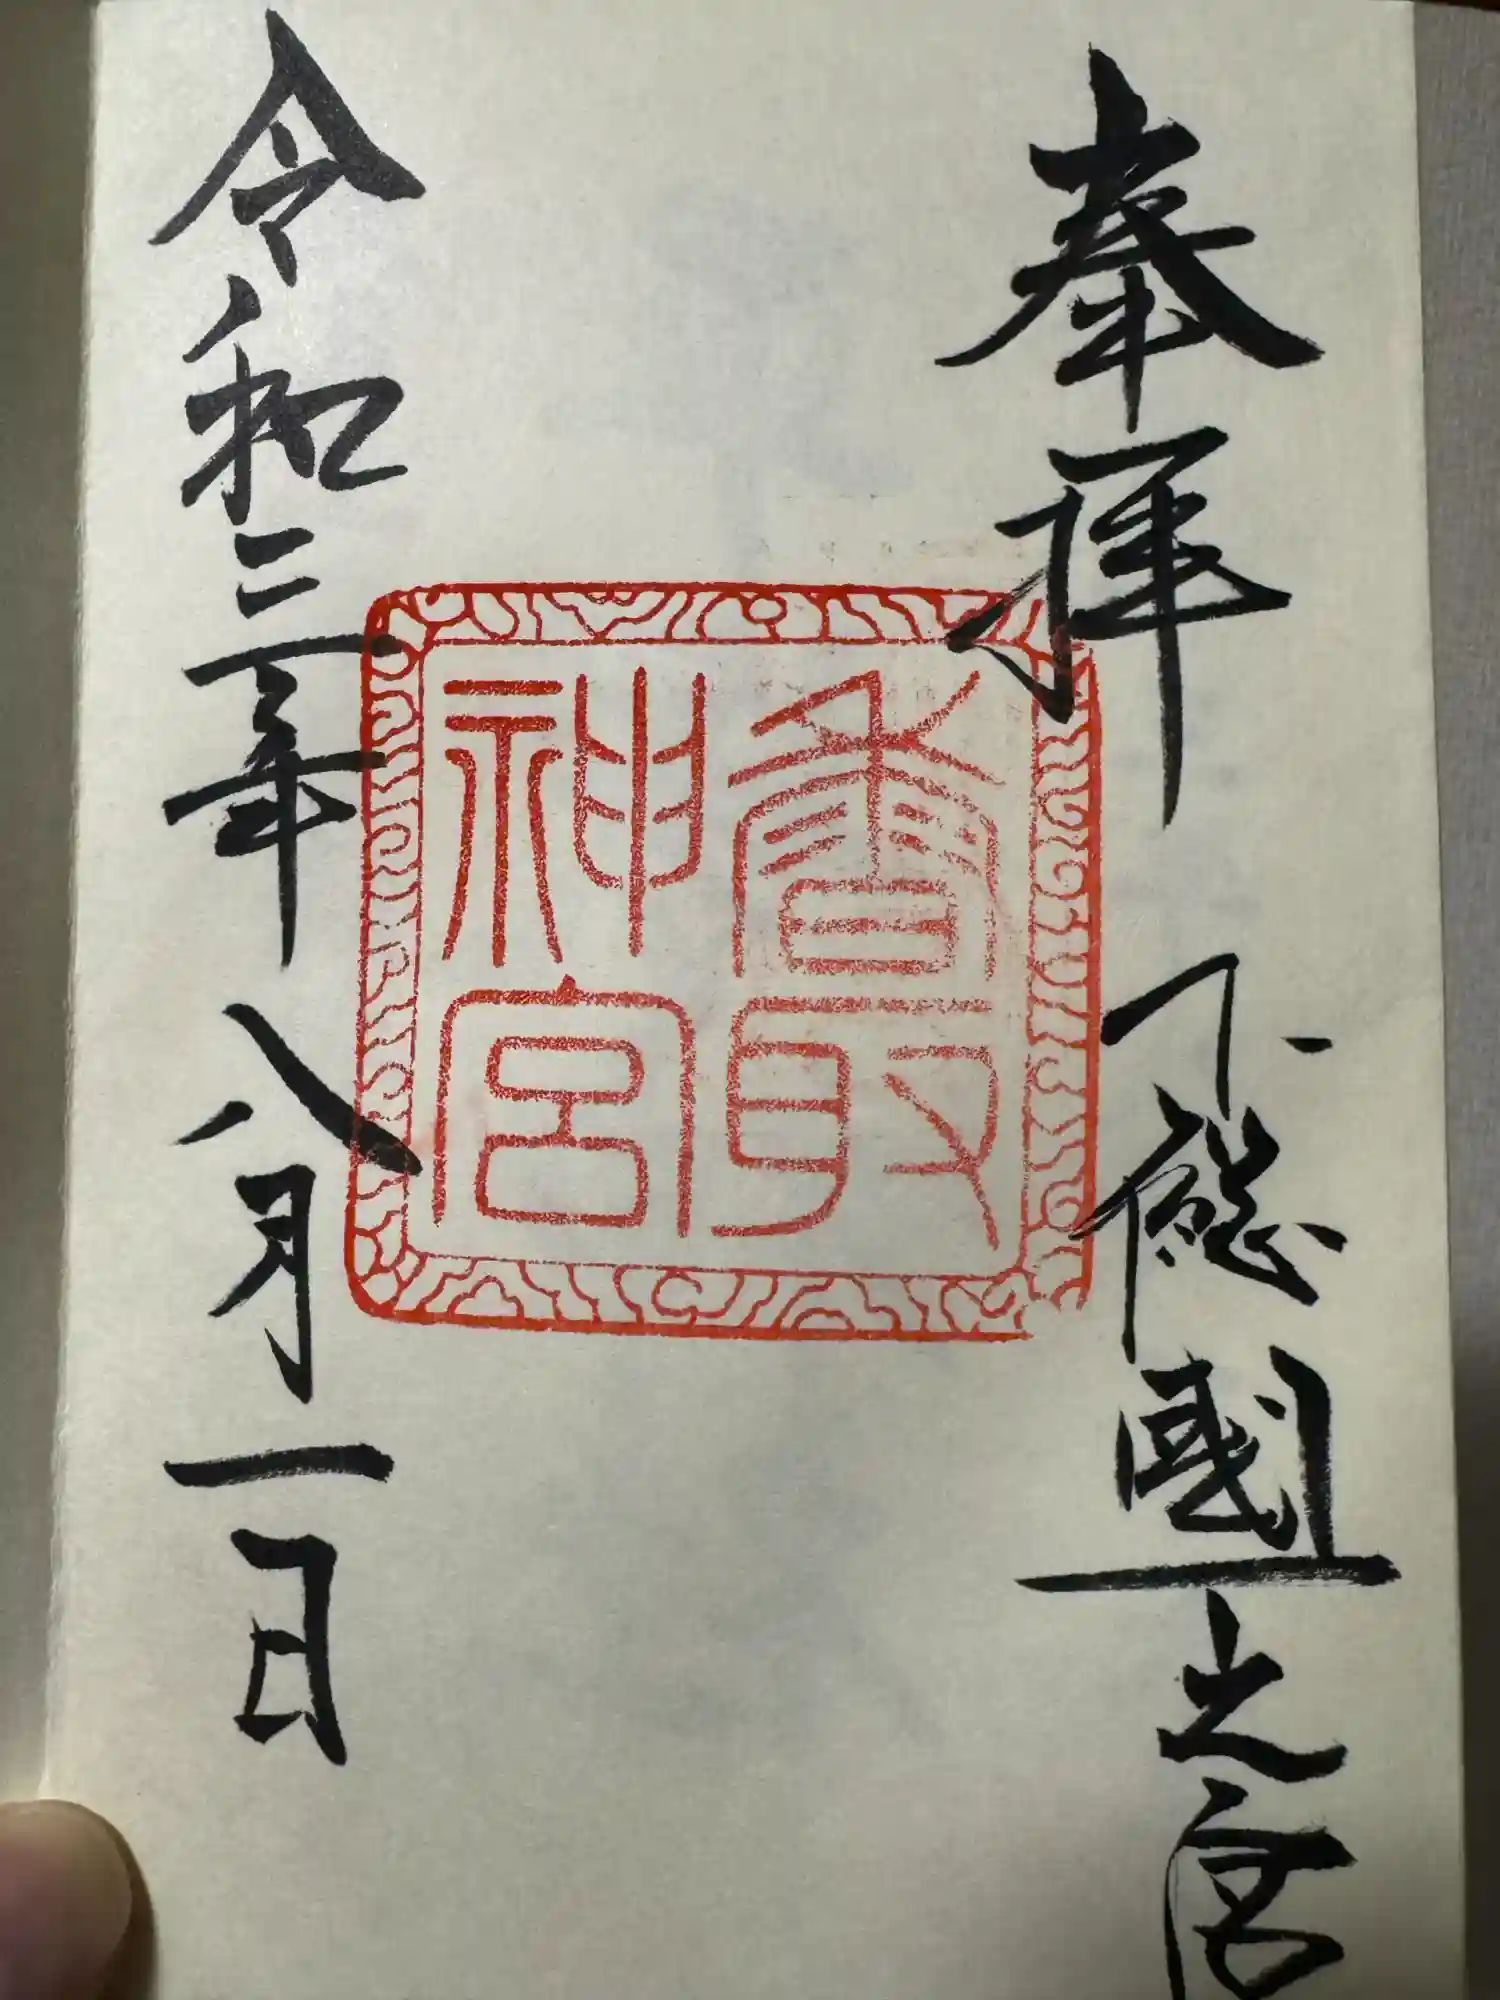 奉拝 下総國一之宮
香取神宮
令和三年八月一日